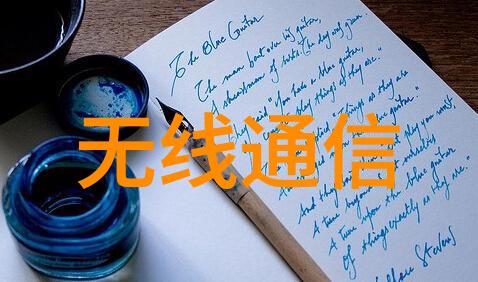 The Blue Guitar
The man bent over his guitar,
A shearsman of sorts. The day was green.
They said "You have a blue guitar,
play things as they are."
"Things as they are
blue guitar."
And they play you must,
A tune beyond ourselves
A tune upon the blue guitar
Of things exactly as they are."
Stevens
无线通信